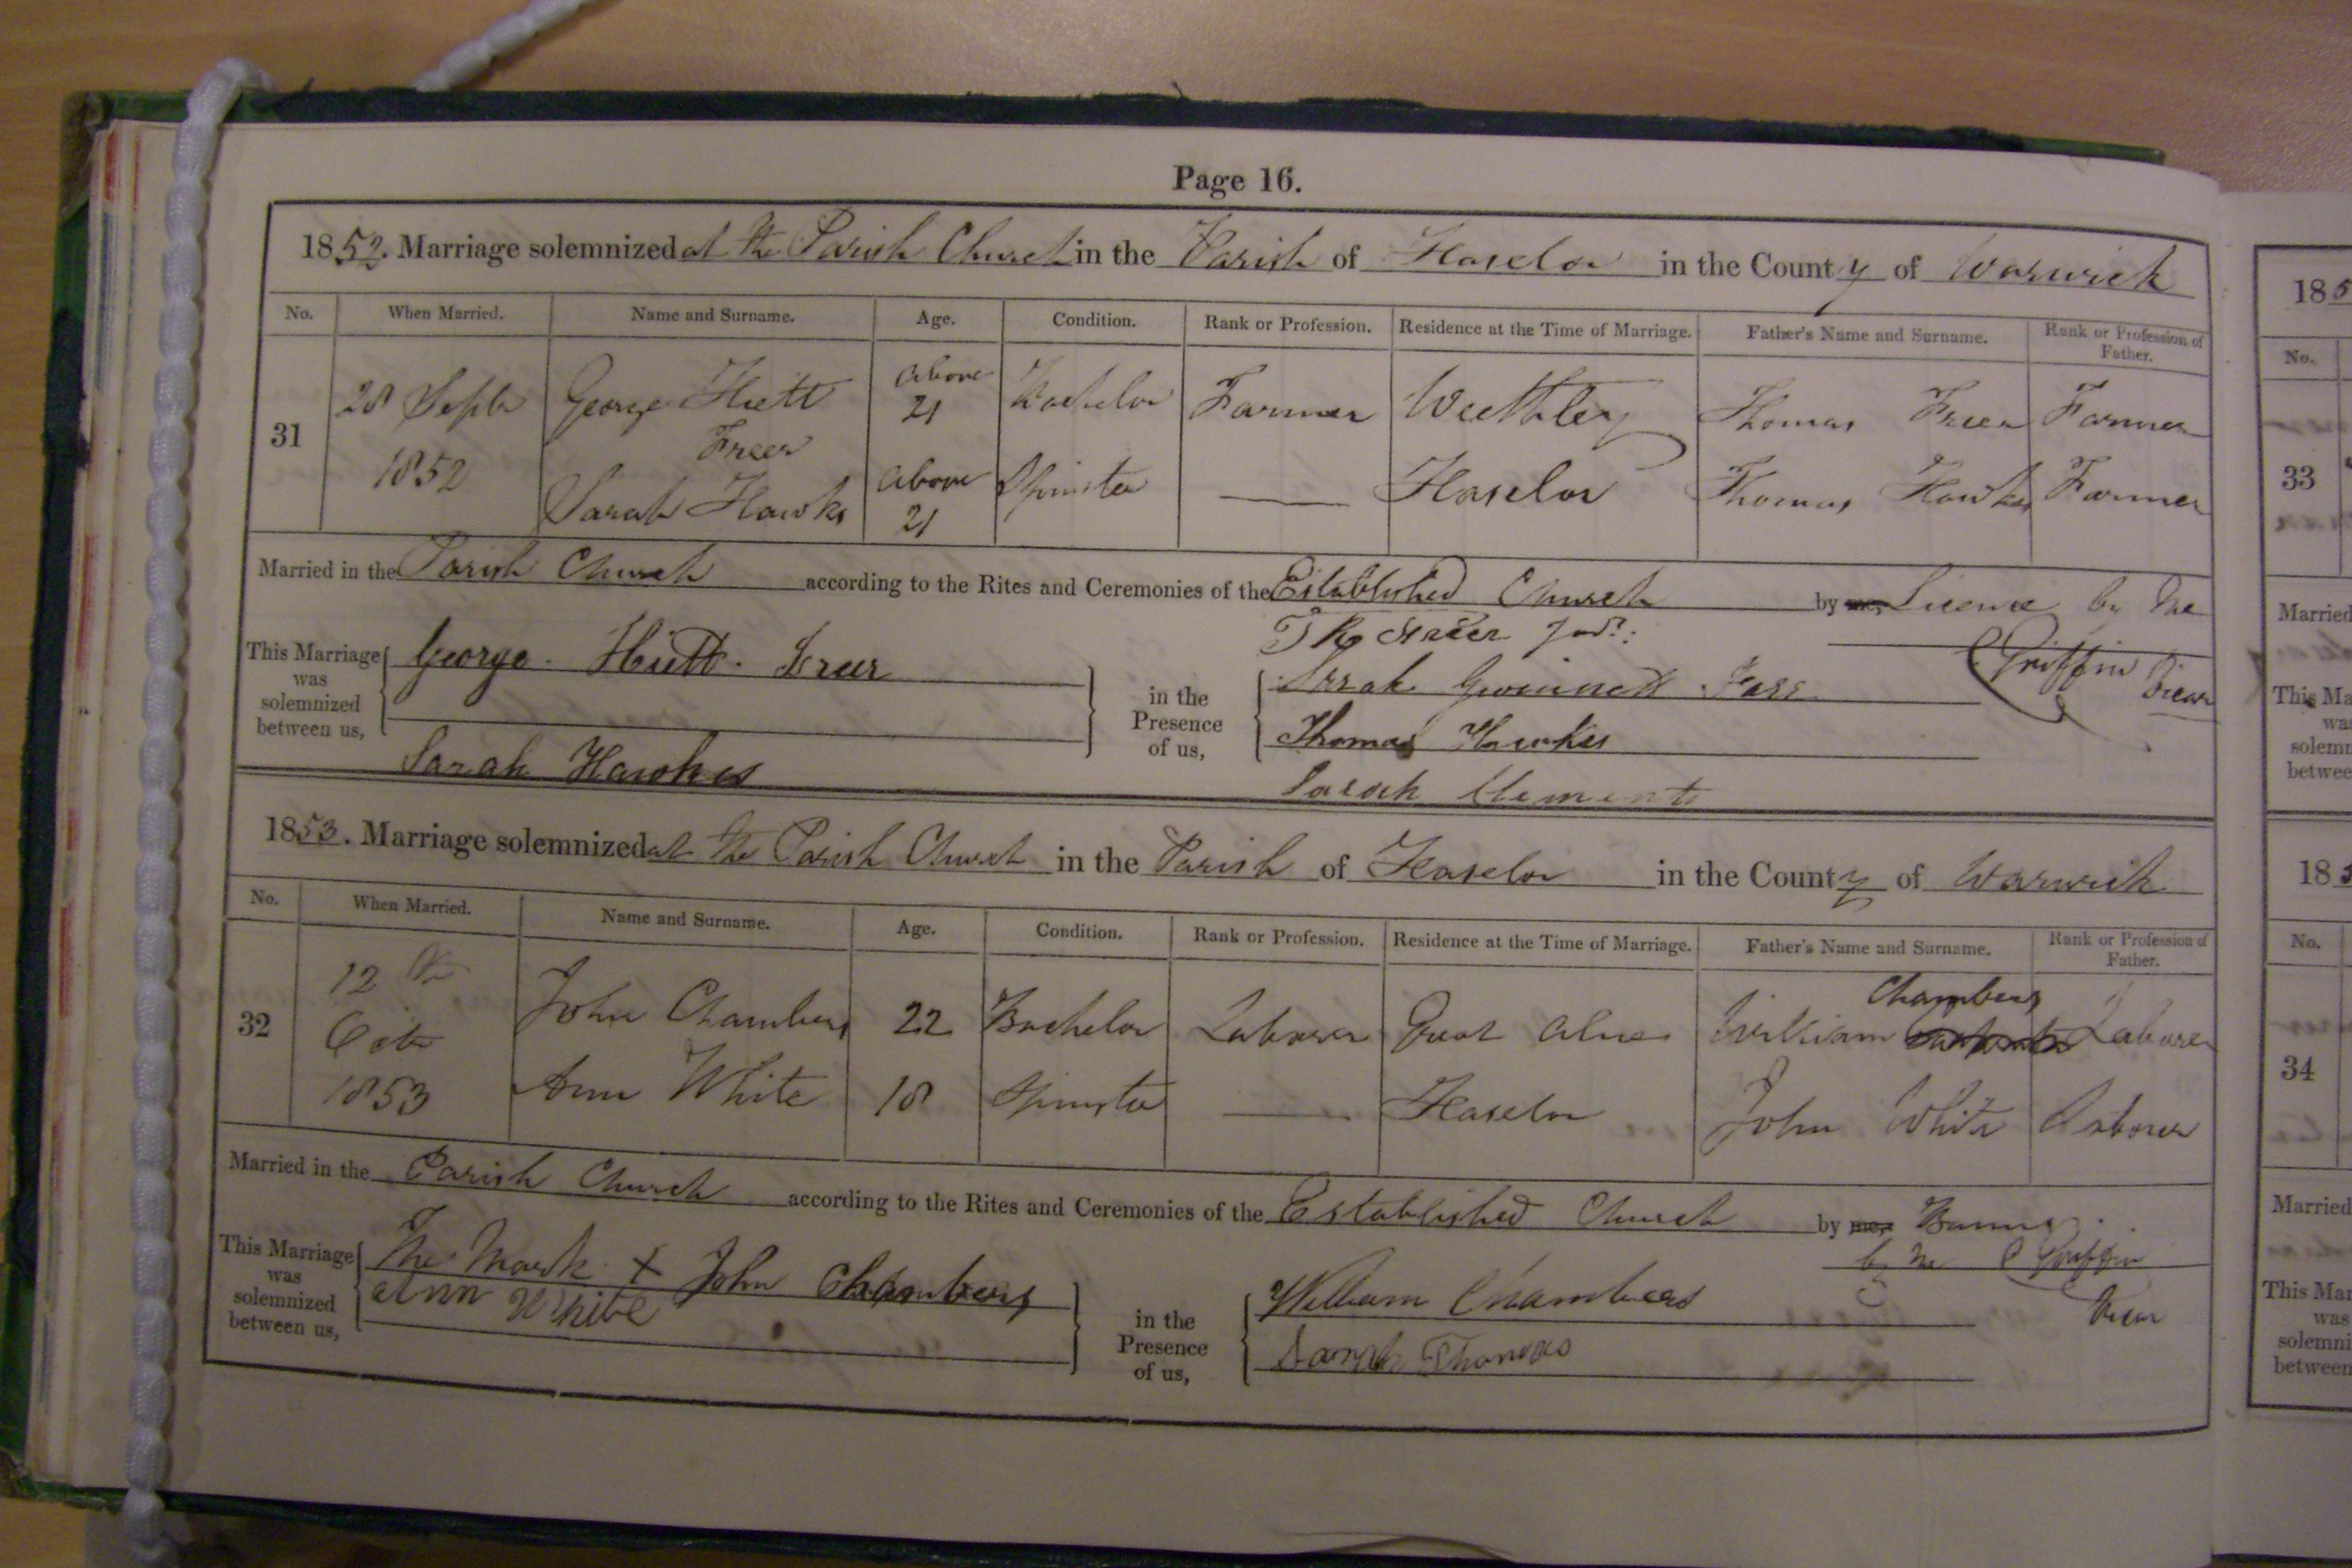 Page 16.
1852. Marriage solemnized at the Parish Church in the Parish of Haselor in the County of Warwick
No. When Married. Name and Surname. Age. Condition. Rank or Profession. Residence at the Time of Marriage. Father's Name and Surname. Rank or Profession of Father.
31 28 Septr 1852 George Hiett Freer above 21 Bachelor Farmer Weethley Thomas Freer Farmer
Sarah Hawkes above 21 Spinster — Haselor Thomas Hawkes Farmer
Married in the Parish Church according to the Rites and Ceremonies of the Established Church by me, License by me
C Griffin Vicar
This Marriage was solemnized between us,
George Hiett Freer
Sarah Hawkes
in the Presence of us,
Freer
Sarah Gwinnett
Thomas Hawkes
Sarah Clements
1853. Marriage solemnized at the Parish Church in the Parish of Haselor in the County of Warwick
No. When Married. Name and Surname. Age. Condition. Rank or Profession. Residence at the Time of Marriage. Father's Name and Surname. Rank or Profession of Father.
32 12th Octr 1853 John Chambers 22 Bachelor Laborer Great Alne William Chambers Laborer
Ann White 18 Spinster — Haselor John White Laborer
Married in the Parish Church according to the Rites and Ceremonies of the Established Church by me, Banns
by me C Griffin
Vicar
This Marriage was solemnized between us,
The Mark X John Chambers
Ann White
in the Presence of us,
William Chambers
Sarah Thomas
185
No.
33
Married
This Ma
was
solemn
betwee
185
No.
34
Married
This Mar
was
solemni
between